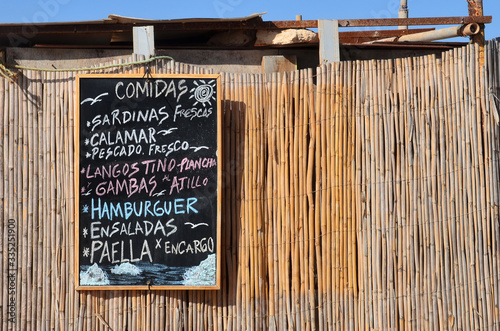 COMIDAS
*SARDINAS FRESCAS
*CALAMAR
*PESCADO FRESCO
*LANGOSTINO-PLANCHA
*GAMBAS * AJILLO
*HAMBURGUER
*ENSALADAS
*PAELLA x ENCARGO
Adobe Stock | #335251900